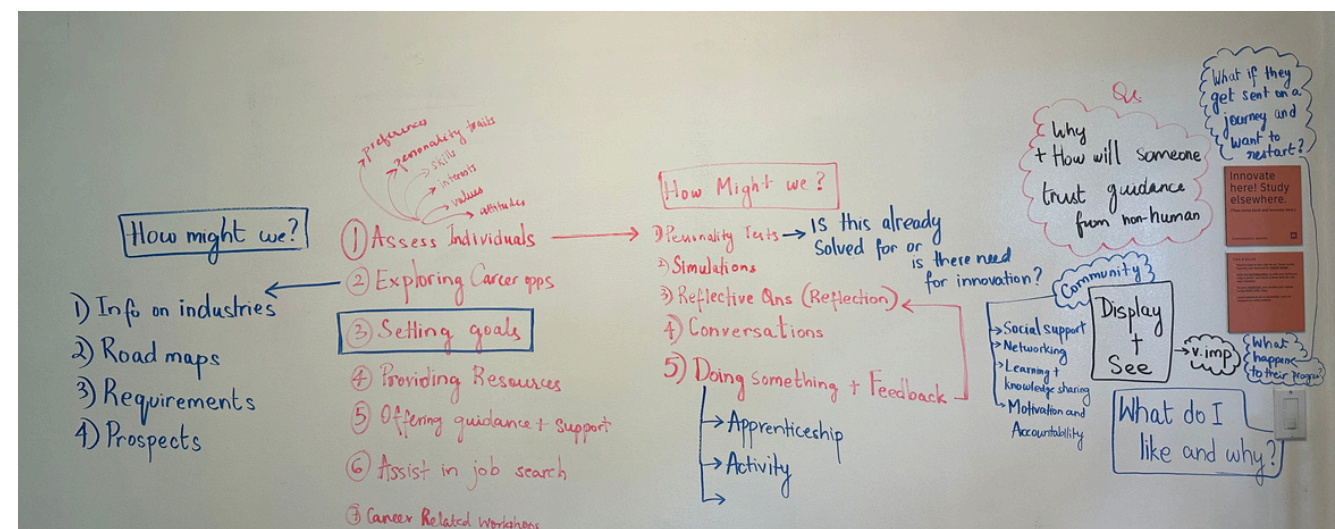 How might we?
1) Info on industries
2) Road maps
3) Requirements
4) Prospects
preferences
personality traits
skills
interests
values
attitudes
1 Assess Individuals
2 Exploring Career opps
3 Setting goals
4 Providing Resources
5 Offering guidance + support
6 Assist in job search
7 Career Related Workshops
How Might we?
1) Personality Tests → Is this already
Solved for or
is there need
for innovation?
2) Simulations
3) Reflective Qns (Reflection)
4) Conversations
5) Doing something + Feedback
→ Apprenticeship
→ Activity
Qs
Why
+ How will someone
trust guidance
from non-human
What if they
get sent on a
journey and
want to
restart?
Innovate
here! Study
elsewhere.
Community
→ Social support
→ Networking
→ Learning +
knowledge sharing
→ Motivation and
Accountability
Display
+
See
→ v.imp
What
happens
to their progress?
What do I
like and why?